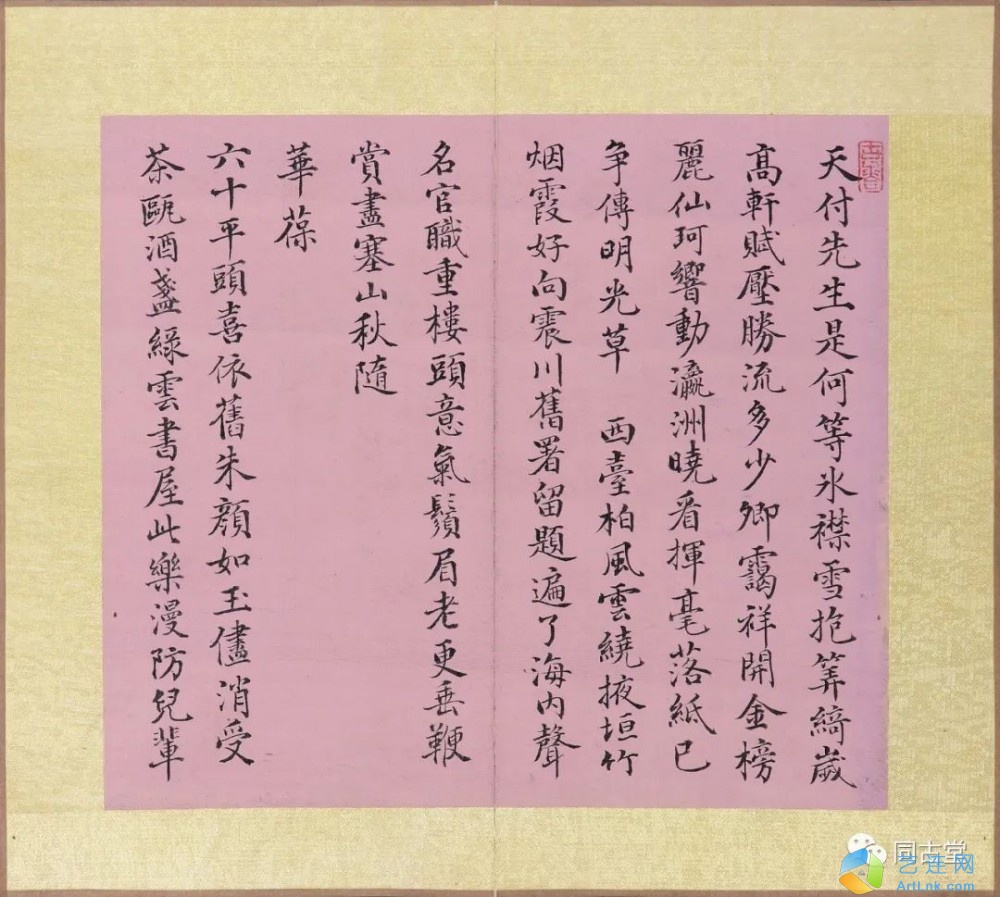 天付先生是何等氷襟雪抱筭綺歲
高軒賦壓勝流多少卿靄祥開金榜
麗仙珂響動瀛洲曉看揮毫落紙已
爭傳明光草　西臺柏風雲繞掖垣竹
烟霞好向震川舊署留題遍了海内聲
名官職重樓頭意氣鬚眉老更垂鞭
賞盡塞山秋隨
華葆
六十平頭喜依舊朱顏如玉儘消受
茶甌酒盞綠雲書屋此樂漫防兒輩
同古堂
艺连网
ArtLnk.com